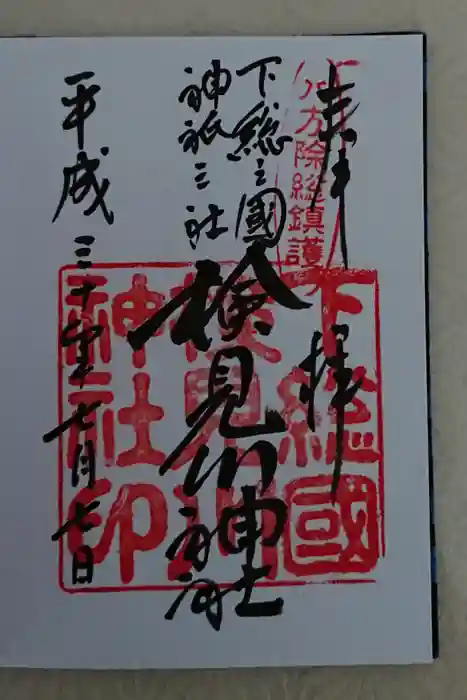 奉拝
八方除総鎮護
下総之國
神祇三社
検見川神社
平成三十年七月七日
下総國
検見川
神社印